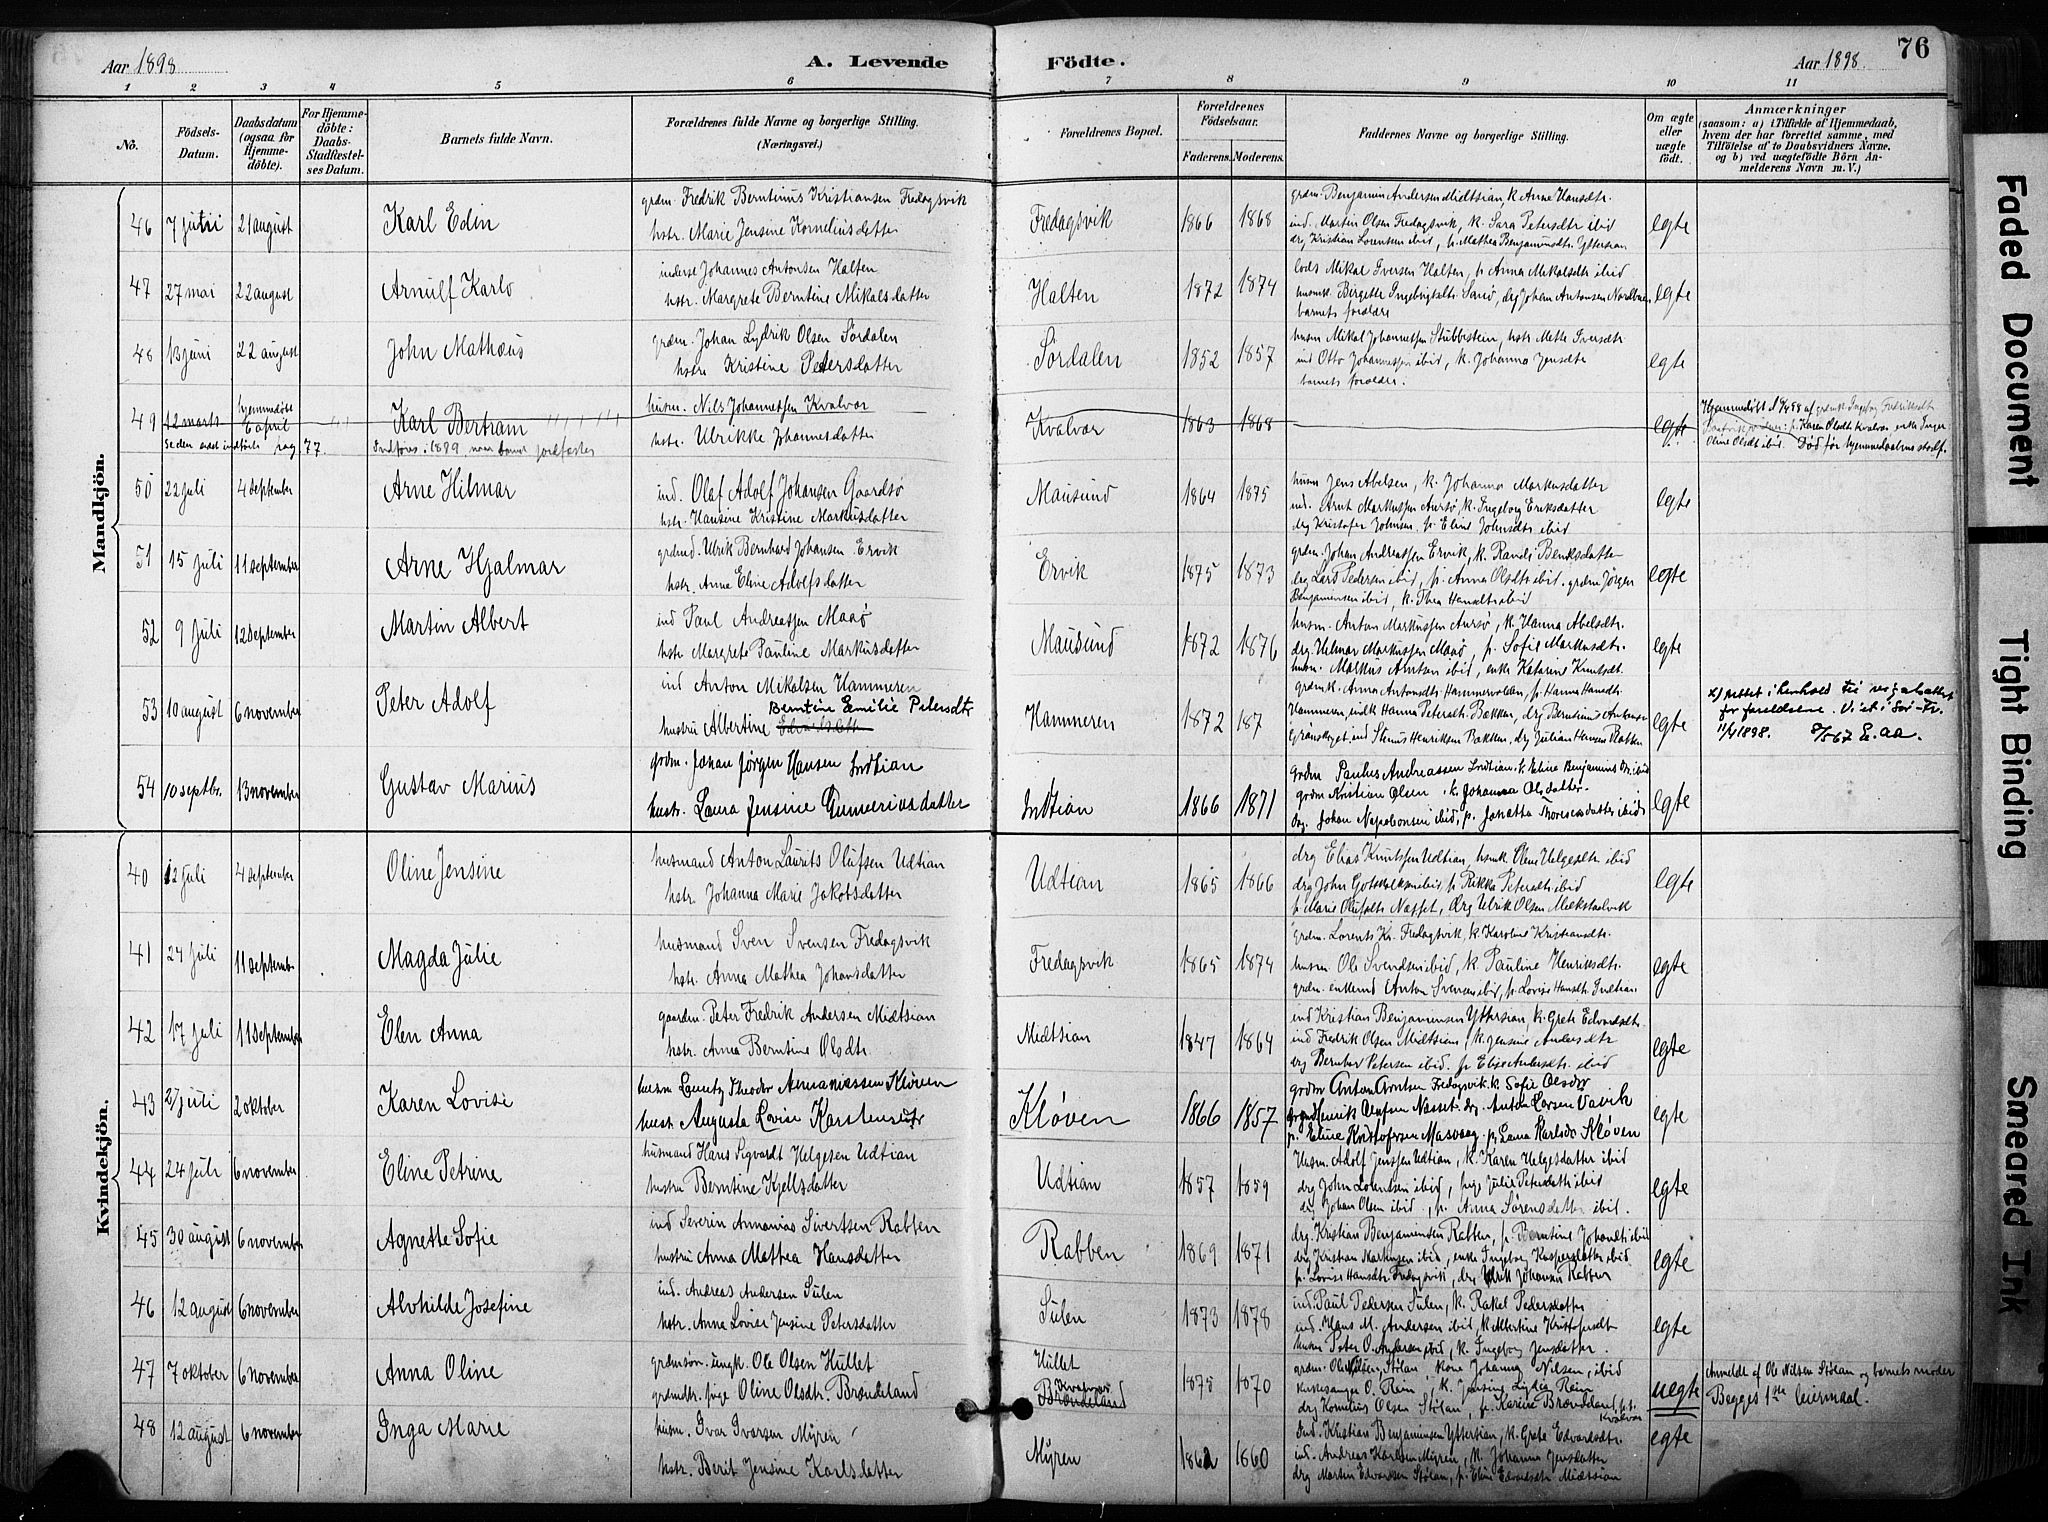 Aar 1898
A. Levende
Födte.
Aar 1898.
76
1 2 3 4 5 6 7 8 9 10 11
No.
Födsels-Datum.
Daabsdatum (ogsaa for Hjemmedöbte).
For Hjemmedöbte: Daabs-Stadfæstelses Datum.
Barnets fulde Navn.
Forældrenes fulde Navne og borgerlige Stilling. (Næringsvei.)
Forældrenes Bopæl.
Forældrenes Födselsaar.
Faderens. Moderens.
Faddernes Navne og borgerlige Stilling.
Om ægte eller uægte födt.
Anmærkninger
(saasom: a) i Tilfælde af Hjemmedaab,
hvem der har forrettet samme, med
Tilföielse af to Daabsvidners Navne.
og b) ved uægtefödte Börn An-
melderens Navn m. V.)
Mandkjön.
46 7 juni 21 august Karl Edin
grdm. Fredrik Berntinus Kristiansen Fredagsvik
hstr. Marie Jensine Korneliusdatter
Fredagsvik 1866 1868
grdm. Benjamin Andersen Midtsian k. Anne Hansdtr.
ind. Martin Olsen Fredagsvik, k. Sara Petersdtr ibid
drg Kristian Lorensen ibid, p. Mathea Benjaminsdtr. Yttersian
egte
47 27 mai 22 august Arnulf Karlo
inderst Johannes Antonsen Halten
hstr. Margrete Berntine Mikalsdatter
Halten 1872 1874
lods Mikal Iversen Halten, p. Anna Mikalsdtr ibid
husmk. Birgitte Ingebrigtsdtr. Sanö, drg Johan Antonsen
barnets forældre
egte
48 13 juni 22 august John Mathæus
grdm. Johan Lydrik Olsen Sördalen
hstr Kristine Petersdatter
Sördalen 1852 1857
husm Mikal Johannessen Stubbestein, hstr Mette Iversdtr
ind Otto Johannessen ibid, k. Johanna Jensdtr
barnets forældre.
egte
49 12 marts hjemmedöbt 6 april Karl Bertram
husm. Nils Johannessen Kvalvær
hstr. Ulrikke Johannesdatter
Kvalvær 1863 1868
egte
Seden indförte pag 77. Indföres 1899
Oline Olsdtr ibid. Död för hjemmedaabens stadf.
50 22 juli 4 september Arne Hilmar
ind. Olaf Adolf Johansen Gaardsö
hstr. Hansine Kristine Markusdatter
Mausund 1864 1875
husm Jens Abelsen, k. Johanna Markusdatter
ind. Arnt Markussen Aursö, k. Ingeborg Eriksdatter
drg Kristofer Johnsen, p. Eline Johnsdtr ibid
egte
51 15 juli 11 september Arne Hjalmar
grdmd. Ulrik Bernhard Johansen Ervik
hstr. Anne Eline Adolfsdatter
Ervik 1875 1873
grdm. Johan Andreassen Ervik, k. Randi Bentsdatter
drg Lars Pedersen ibid, p. Anna Olsdtr ibid. grdm Jörgen
Benjaminsen ibid, k. Thea Hansdtr ibid
egte
52 9 juli 12 september Martin Albert
ind Paul Andreassen Maaö
hstr Margrete Pauline Markusdatter
Mausund 1872 1876
husm. Anton Markussen Aursö, k. Hanna Abelsdtr.
drg. Helmar Markussen Maaö, p. Sofie Markusdtr.
husm. Markus Antsen ibid, enke Katarine Knutsdtr.
egte
53 10 august 6 november Peter Adolf
ind Anton Mikalsen Hammeren
Berntine Emilie Petersdtr
hustru Albertine
Hammeren 1872 187
grdmk. Anna Antonsdtr Hammervolden, p. Hanna Hansdtr
Hammeren, indk Hanna Petersdtr. Bakken, drg Berntinus Antonsen
ind Stinus Henriksen Bakken, drg Julian Hansen
egte
x) rettet i henhold til
for foreldrene.
11/4 1898. 8/5 67 E. aa.
54 10 septbr. 13 november Gustav Marius
grdm. Johan Jörgen Hansen Indtian
hustr. Laura Jensine Gunneriusdatter
Indtian 1866 1871
grdm Paulus Andreassen Indtian. k. Eline Benjamins Dr. ibid
grdm Kristian Olsen, k. Johanna Olsdatter
drg. Johan Napoleonsen ibid, p. Jonetta Thoresensdatter ibid
egte
Kvindekjön.
40 12 juli 4 september Oline Jensine
husmand Anton Laurits Olufsen Udtian
hstr. Johanna Marie Jakobsdatter
Udtian 1865 1866
drg Elias Knutssen Udtian, husmk Olene Helgesdtr ibid
drg John Gotskalksen ibid, p. Rikka Petersdtr ibid
p. Marie Olufsdtr. Nesset, drg Ulrik Olsen
egte
41 24 juli 11 septembr Magda Julie
husmand Sven Svensen Fredagsvik
hstr. Anna Mathea Johansdatter
Fredagsvik 1865 1874
grdm. Lorents Kr. Fredagsvik, k. Karoline Kristiansdtr.
husm. Ole Svendsen ibid, k. Pauline Henriksdtr.
grdm. enkemd Anton Svensen ibid, p. Lovise Hansdtr. Indtian
egte
42 17 juli 11 september Elen Anna
gaardm. Peter Fredrik Andersen Midtsian
hstr. Anna Berntine Olsdtr.
Midtsian 1847 1864
ind Kristian Benjaminsen Yttersian, k. Grete Edvardsdtr.
ind Fredrik Olsen Midtsian, k. Jensine Andersdtr
drg Bernhar Petersen ibid. p. Elise Andersdtr. ibid
egte
43 27 juli 2 oktober Karen Lovise
husm Lauritz Theodor Annaniassen Klöven
hustr Augusta Lovise Karstensdtr
Klöven 1866 1857
grdm Anton Arntsen Fredagsvik k. Sofie Olsdtr
Henrik Olufsen Nesset. drg. Anton Larsen Vavik
p. Eline Kristofersen Masvaag. p. Lorna Karlsdr Klöven
egte
44 24 juli 6 november Eline Petrine
husmand Hans Sigvardt Helgesen Udtian
hustru Berntine Kjellsdatter
Udtian 1857 1859
Husm. Adolf Jenssen Udtian, k. Karen Helgesdatter ibid
drg John Lorentsen ibid, pige Julie Petersdatr ibid
drg Johan Olsen ibid, p. Anna Sörensdatter ibid.
egte
45 30 august 6 november Agnette Sofie
ind Severin Annanias Sivertsen Rabben
hustru Anna Mathea Hansdatter
Rabben 1869 1871
drg. Kristian Benjaminsen Rabben, p. Berntine Johandtr ibid
drg Kristian Markusen ibid, enke Ingeborg Kaspersdatter ibid
p. Lovise Hansdtr Fredagsvik, drg Ulrik Johansen Rabben
egte
46 12 august 6 november Alvhilde Josefine
ind. Andreas Andersen Sulen
hstr. Anne Lovise Jensine Petersdatter
Sulen 1873 1878
ind. Paul Pedersen Sulen, k. Rakel Pedersdatter
ind. Hans M. Andersen ibid, k. Albertine Kristofersdtr
husm Peter O. Andersen ibid, k. Ingeborg Jensdatter.
egte
47 7 oktober 6 november Anna Oline
grdmsön. ungk. Ole Olsen Hullet
grdmdtr. pige Oline Olsdtr. Bröndeland
Hullet
Kvalvær
Bröndeland 1875 1870
grdm. Ole Nilsen, Stölan, kone Johanna Nilsen, ibid
kirkesanger O. Rein, k. Jensine Lydie Rein
drg Kornelius Olsen Stölan, p. Karine Bröndeland, p.t. Kvalvær
uegte
Anmeldt af Ole Nilsen Stölan og barnets moder
Begges 1ste leiermaal.
48 12 august 6 november Inga Marie
husm. Ivar Ivarsen Myren
hstr. Berit Jensine Karlsdatter
Myren 1862 1860
Ind. Kristian Benjaminsen Yttersian, k. Grete Edvardsdtr.
ind. Andreas Karlsen Myren, k. Johanna Jensdatter
drg Martin Edvardsen Stölan, p. Eline Edvardsdtr Midtsian
egte
Faded Document
Tight Binding
Smeared Ink